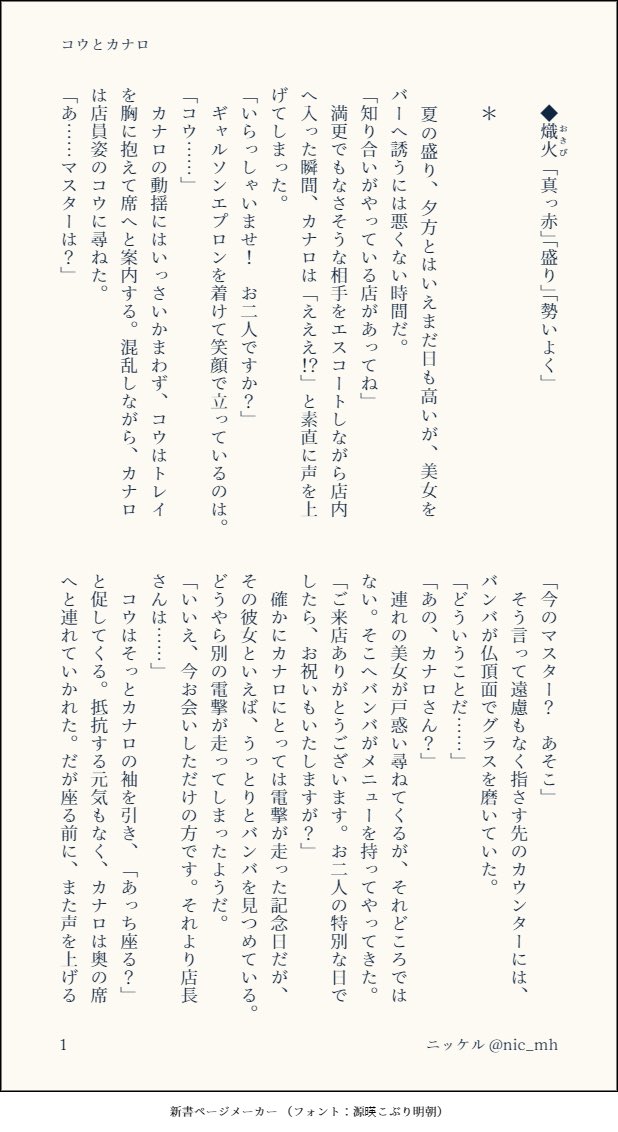 コウとカナロ
◆熾火「真っ赤」「盛り」「勢いよく」
おきび
＊
　夏の盛り、夕方とはいえまだ日も高いが、美女を
バーへ誘うには悪くない時間だ。
「知り合いがやっている店があってね」
　満更でもなさそうな相手をエスコートしながら店内
へ入った瞬間、カナロは「えええ!?」と素直に声を上
げてしまった。
「いらっしゃいませ！　お二人ですか？」
　ギャルソンエプロンを着けて笑顔で立っているのは。
「コウ……」
　カナロの動揺にはいっさいかまわず、コウはトレイ
を胸に抱えて席へと案内する。混乱しながら、カナロ
は店員姿のコウに尋ねた。
「あ……マスターは？」
「今のマスター？　あそこ」
　そう言って遠慮もなく指さす先のカウンターには、
バンバが仏頂面でグラスを磨いていた。
「どういうことだ……」
「あの、カナロさん？」
　連れの美女が戸惑い尋ねてくるが、それどころでは
ない。そこへバンバがメニューを持ってやってきた。
「ご来店ありがとうございます。お二人の特別な日で
したら、お祝いもいたしますが？」
　確かにカナロにとっては電撃が走った記念日だが、
その彼女といえば、うっとりとバンバを見つめている。
どうやら別の電撃が走ってしまったようだ。
「いいえ、今お会いしただけの方です。それより店長
さんは……」
　コウはそっとカナロの袖を引き、「あっち座る？」
と促してくる。抵抗する元気もなく、カナロは奥の席
へと連れていかれた。だが座る前に、また声を上げる
1
ニッケル @nic_mh
新書ページメーカー（フォント：源暎こぶり明朝）